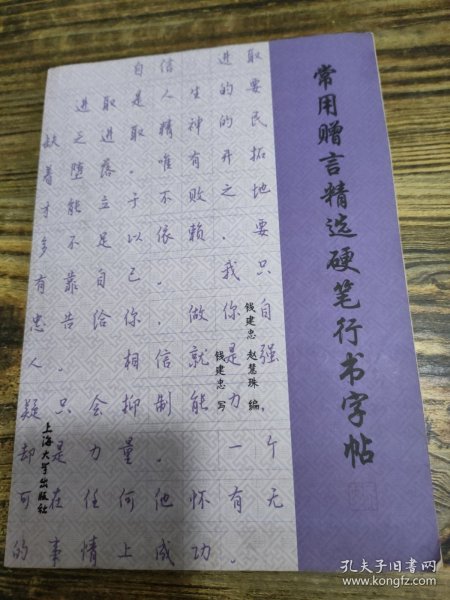 常用赠言精选硬笔行书字帖
钱建忠 赵慧珠 编
钱建忠 写
上海大学出版社
自信 进取
进取是人生的要
缺乏进取精神的民
着堕落。唯有开拓
才能立于不败之地
多不足以依赖。要
有靠自己。 我只
忠告给你，做你自
人。 相信就是强
疑只会抑制能力，
却是力量。 一个
可在任何他怀有无
的事情上成功。
孔夫子旧书网
www.kongfz.com